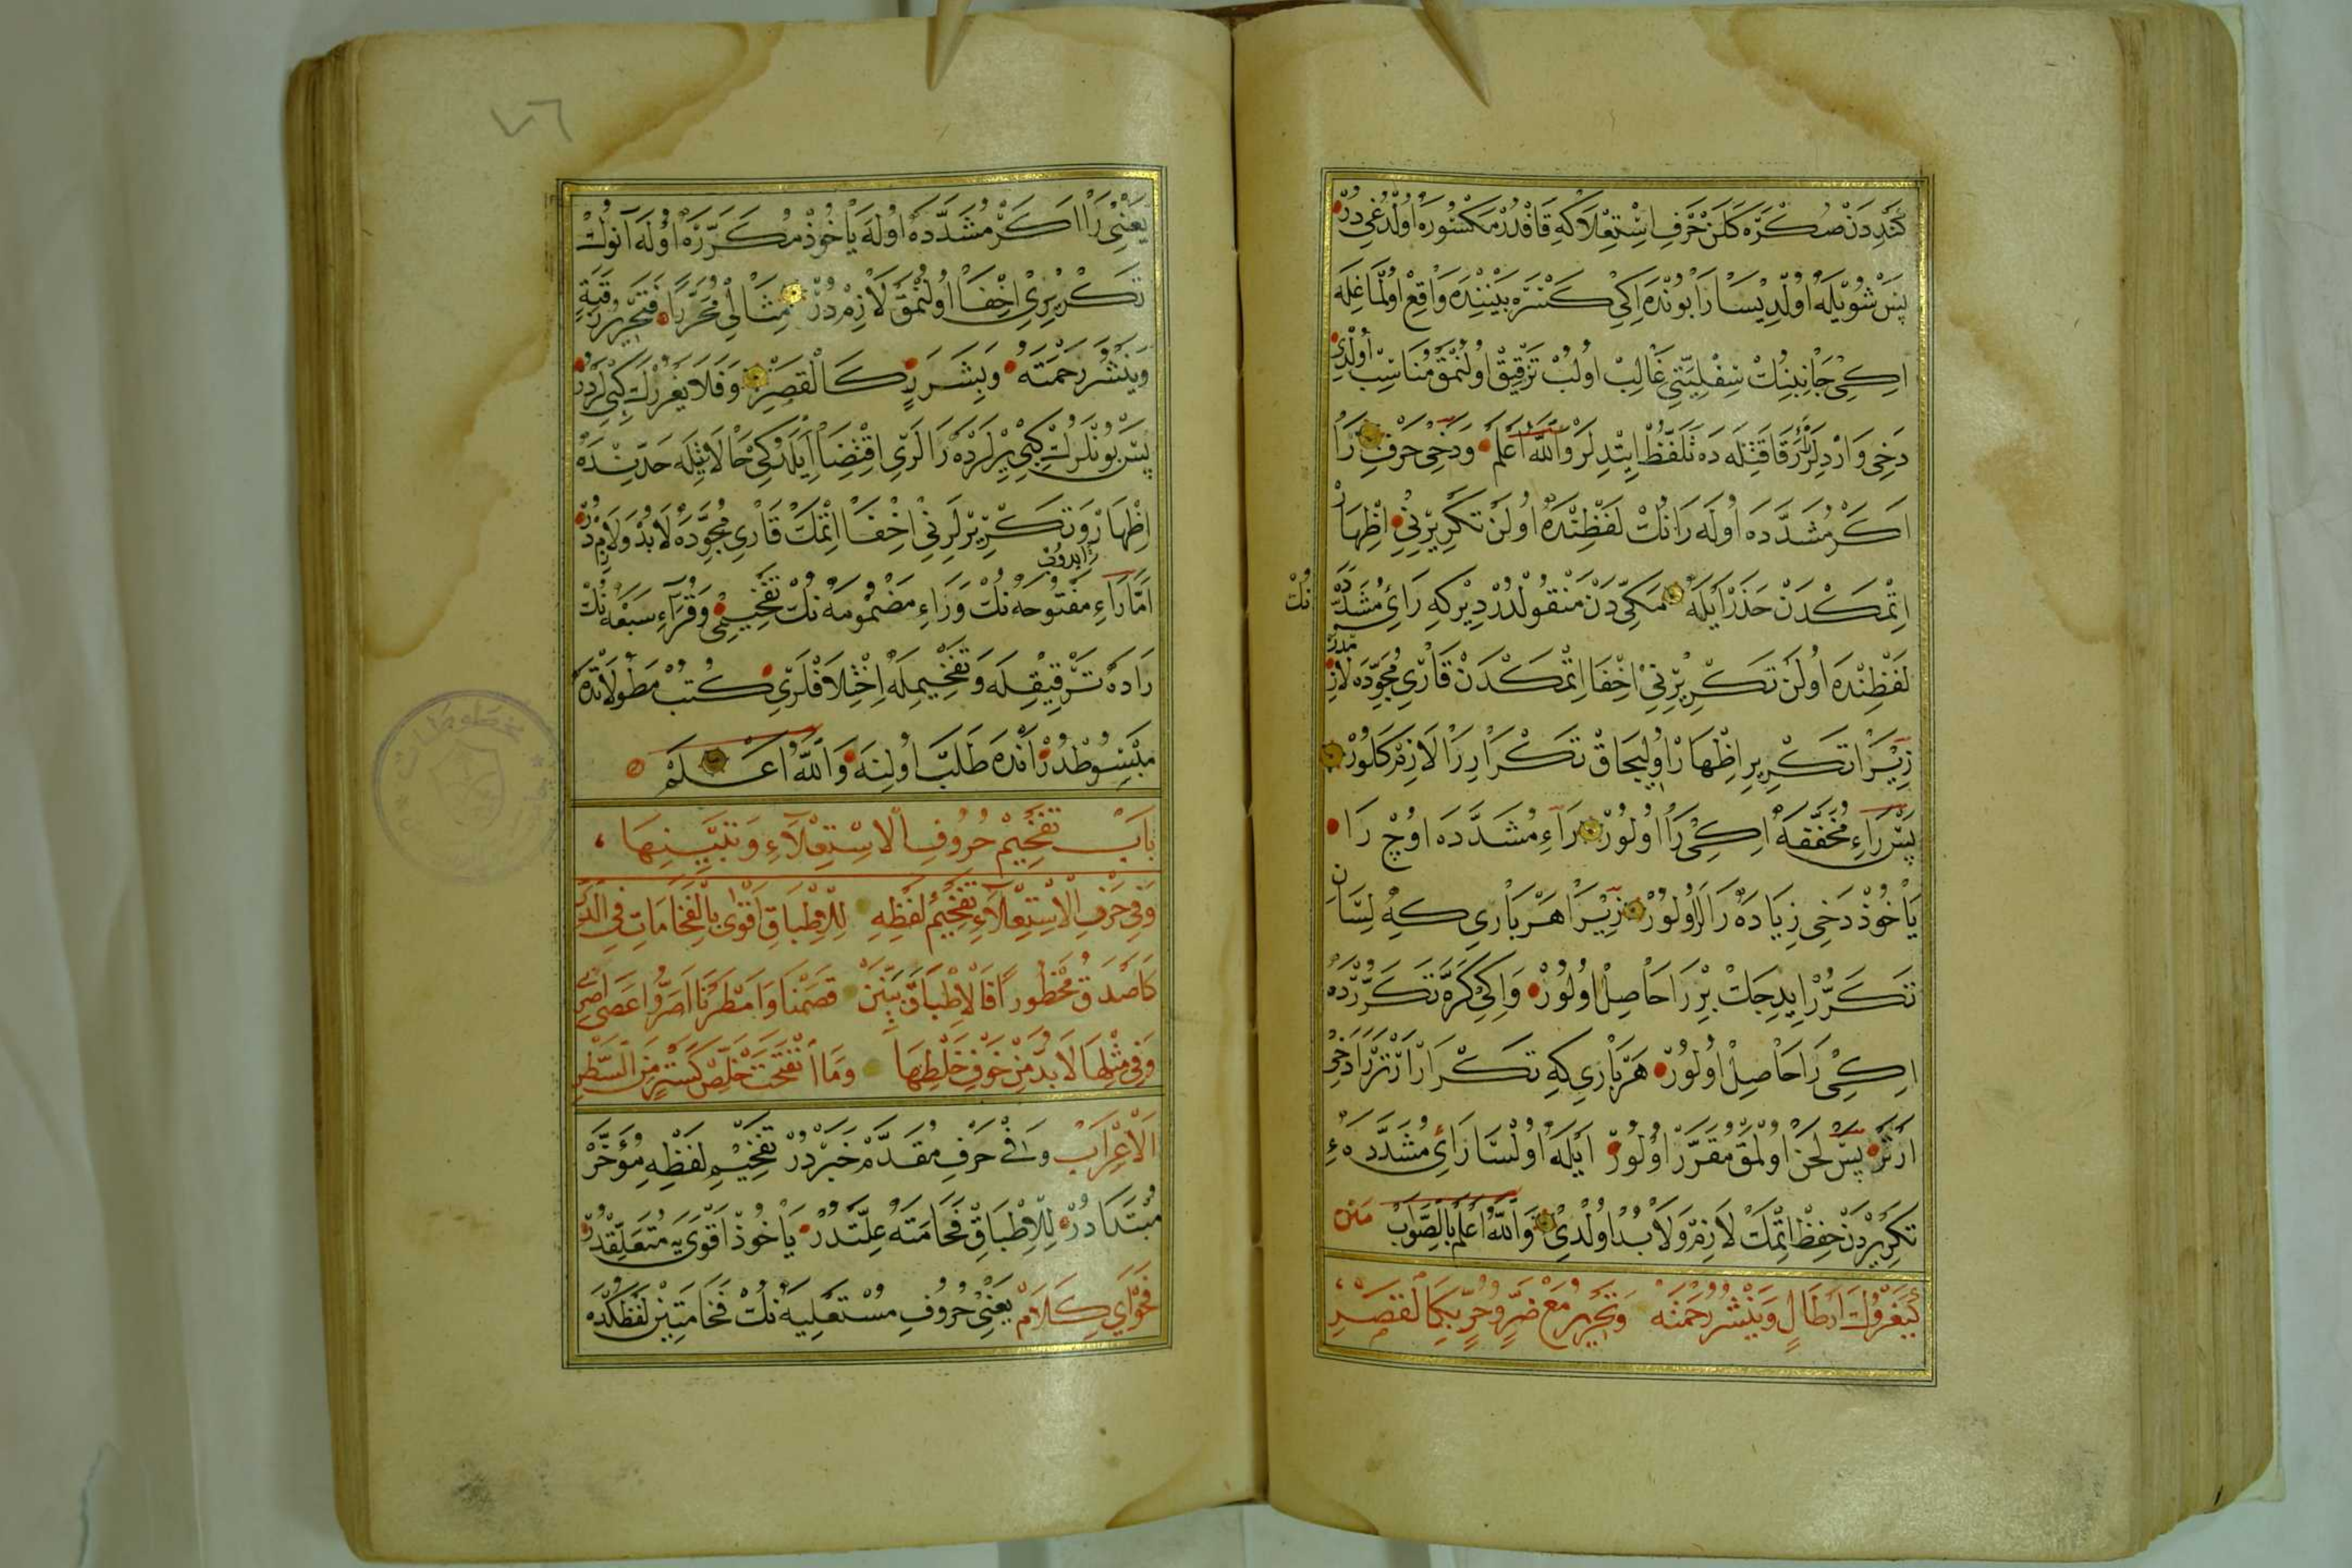 كندندن صكره كلن حرف استعلا كه قافدر مكسوره اولدغى در
پس شويله اولديسا را بونده اكى كسره بيننده واقع اولماغله
اكى جانبنك سفليتى غالب اولب ترقيق اولنمق مناسب اولدى
دخى واردلر رقاقتله ده تلفظ ايتدلر والله اعلم ودخى حرف را
اكر مشدده اوله رانك لفظنده اولن تكريرنى اظهار
اتمكدن حذر ايله مكى دن منقولدر ديركه رائ مشدده نك
لفظنده اولن تكريرنى اخفا اتمكدن قارئ مجوده لازمدر
زيرا تكرير اظهار اوليجاق تكرار را لازم كلور
پس راء مخففه اكى را اولور راء مشدده اوچ را
ياخوذ دخى زياده رالر اولور زيرا هر بارى كه لسان
تكرر ايديجك بر را حاصل اولور واكى كره تكررده
اكى را حاصل اولور هر بارى كه تكرار ارتر را دخى
ارتر پس لحن اولمق مقرر اولور ايله اولسا رائ مشدده ء
تكريردن حفظ اتمك لازم ولابد اولدى والله اعلم بالصواب متن
وينشر رحمته وتحرير مع ضر وحر بكالقصر
٧٦
يعنى را اكر مشدده اوله ياخوذ مكرره اوله آنوك
تكريرى اخفا اولنمق لازمدر مثالى محررا فتحرير رقبة
وينشر رحمته وبشرر كالقصر وفلا يغررك كبى لردر
پس بونلرك كبى يرلرده رالرى اقتضا ايلدكى حالاتيله حدينده
اظهار وتكريرلرنى اخفا اتمك قارئ مجوده لابد ولازمدر
اما راء مفتوحه نك وراء مضمومه نك تفخيمى وقراء سبعه نك
راده ترقيقله وتفخيمله اختلافلرى كتب مطولاتده
مبسوطدر انده طلب اولنه والله اعلم
باب تفخيم حروف الاستعلاء وتبيينها
وفى حرف الاستعلاء تفخيم لفظه للاطباق اقوى بالفخامات فى الذكر
كاصدق محظورا فالاطباق بينن قصمنا وامطرنا اصروا عصى اصرى
وفى مثلها لابد من خوف خلطها وما انفتحت خلص كستر من السطر
الاعراب وفى حرف مقدم خبردر تفخيم لفظه مؤخر
مبتدادر للاطباق فخامته علتدر ياخوذ اقوى يه متعلقدر
فحواى كلام يعنى حروف مستعليه نك فخامتين لفظكده